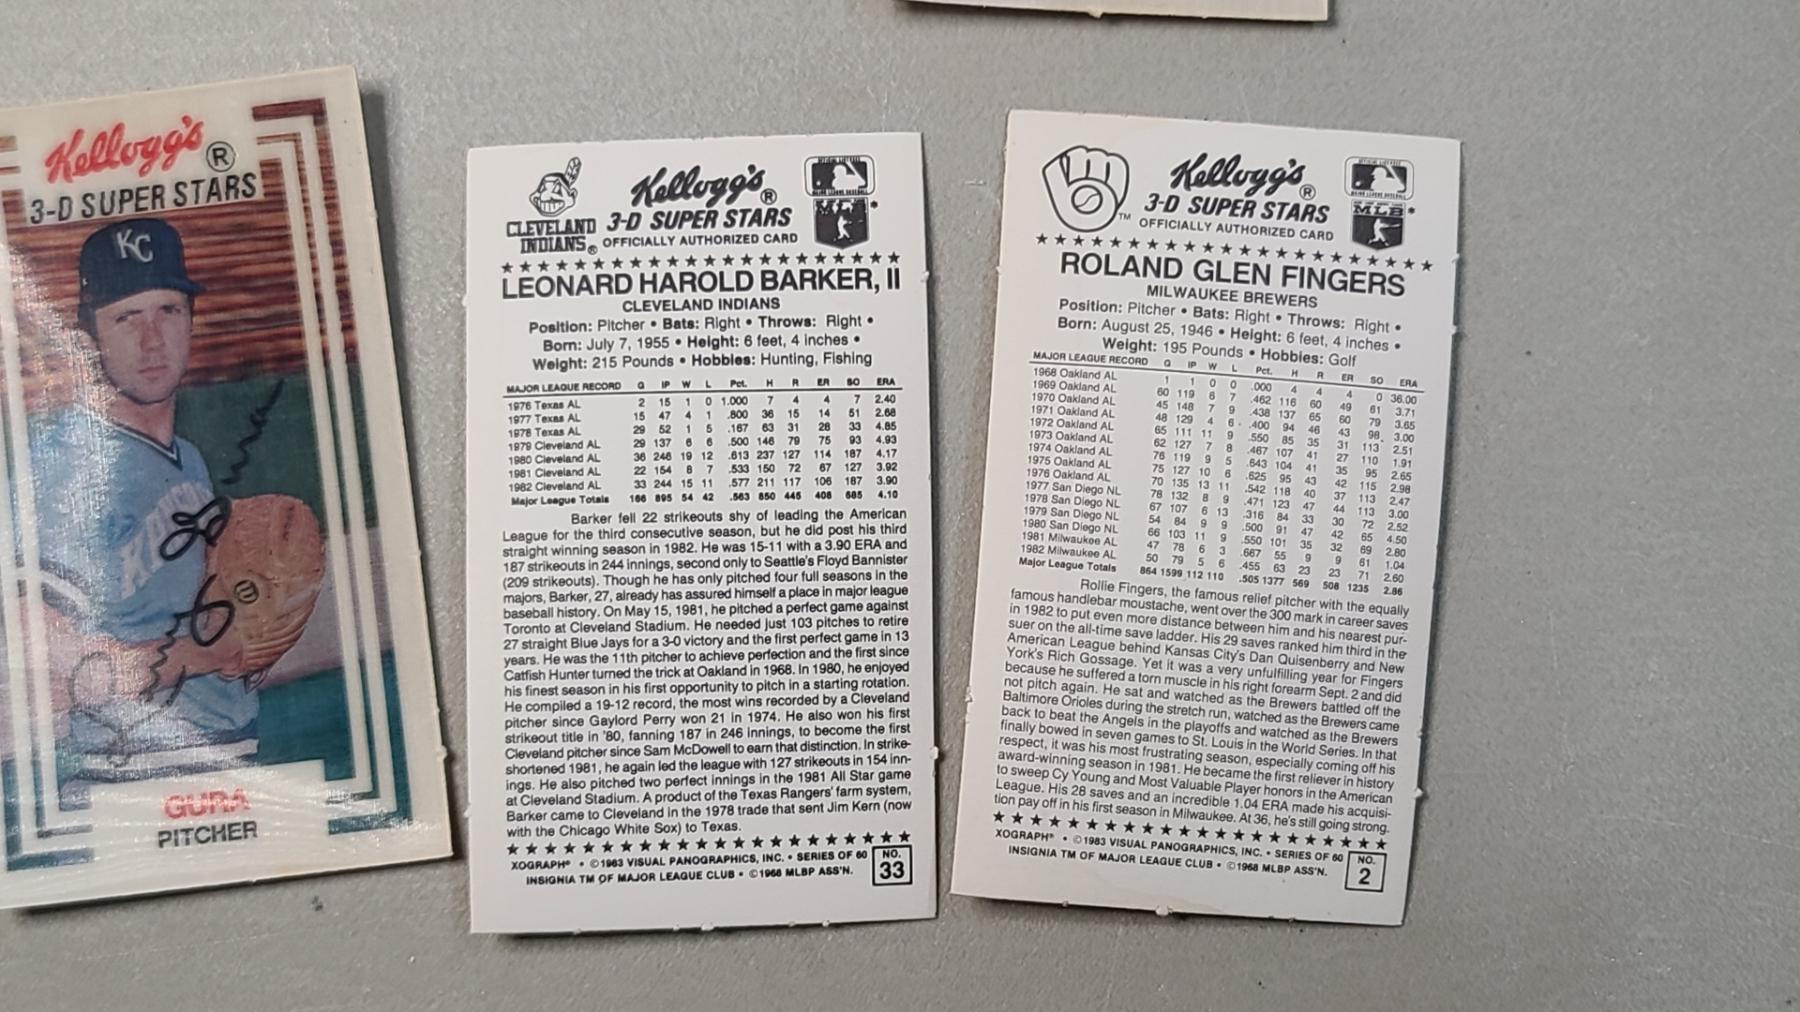 Kellogg's ®
3-D SUPER STARS
KC
GURA
PITCHER
CLEVELAND
INDIANS®
Kellogg's ®
3-D SUPER STARS
OFFICIALLY AUTHORIZED CARD
LEONARD HAROLD BARKER, II
CLEVELAND INDIANS
Position: Pitcher • Bats: Right • Throws: Right •
Born: July 7, 1955 • Height: 6 feet, 4 inches •
Weight: 215 Pounds • Hobbies: Hunting, Fishing
MAJOR LEAGUE RECORD G IP W L Pct. H R ER SO ERA
1976 Texas AL 2 15 1 0 1.000 7 4 4 7 2.40
1977 Texas AL 15 47 4 1 .800 36 15 14 51 2.68
1978 Texas AL 29 52 1 5 .167 63 31 28 33 4.85
1979 Cleveland AL 29 137 6 6 .500 146 79 75 93 4.93
1980 Cleveland AL 36 246 19 12 .613 237 127 114 187 4.17
1981 Cleveland AL 22 154 8 7 .533 150 72 67 127 3.92
1982 Cleveland AL 33 244 15 11 .577 211 117 106 187 3.90
Major League Totals 166 895 54 42 .563 850 445 408 685 4.10
Barker fell 22 strikeouts shy of leading the American
League for the third consecutive season, but he did post his third
straight winning season in 1982. He was 15-11 with a 3.90 ERA and
187 strikeouts in 244 innings, second only to Seattle's Floyd Bannister
(209 strikeouts). Though he has only pitched four full seasons in the
majors, Barker, 27, already has assured himself a place in major league
baseball history. On May 15, 1981, he pitched a perfect game against
Toronto at Cleveland Stadium. He needed just 103 pitches to retire
27 straight Blue Jays for a 3-0 victory and the first perfect game in 13
years. He was the 11th pitcher to achieve perfection and the first since
Catfish Hunter turned the trick at Oakland in 1968. In 1980, he enjoyed
his finest season in his first opportunity to pitch in a starting rotation.
He compiled a 19-12 record, the most wins recorded by a Cleveland
pitcher since Gaylord Perry won 21 in 1974. He also won his first
strikeout title in '80, fanning 187 in 246 innings, to become the first
Cleveland pitcher since Sam McDowell to earn that distinction. In strike-
shortened 1981, he again led the league with 127 strikeouts in 154 inn-
ings. He also pitched two perfect innings in the 1981 All Star game
at Cleveland Stadium. A product of the Texas Rangers' farm system,
Barker came to Cleveland in the 1978 trade that sent Jim Kern (now
with the Chicago White Sox) to Texas.
XOGRAPH® • ©1983 VISUAL PANOGRAPHICS, INC. • SERIES OF 60
INSIGNIA TM OF MAJOR LEAGUE CLUB • ©1968 MLBP ASS'N.
NO.
33
TM
Kellogg's ®
3-D SUPER STARS
OFFICIALLY AUTHORIZED CARD
MLB*
ROLAND GLEN FINGERS
MILWAUKEE BREWERS
Position: Pitcher • Bats: Right • Throws: Right •
Born: August 25, 1946 • Height: 6 feet, 4 inches •
Weight: 195 Pounds • Hobbies: Golf
MAJOR LEAGUE RECORD G IP W L Pct. H R ER SO ERA
1968 Oakland AL 1 1 0 0 .000 4 4 4 0 36.00
1969 Oakland AL 60 119 6 7 .462 116 60 49 61 3.71
1970 Oakland AL 45 148 7 9 .438 137 65 60 79 3.65
1971 Oakland AL 48 129 4 6 .400 94 46 43 98 3.00
1972 Oakland AL 65 111 11 9 .550 85 35 31 113 2.51
1973 Oakland AL 62 127 7 8 .467 107 41 27 110 1.91
1974 Oakland AL 76 119 9 5 .643 104 41 35 95 2.65
1975 Oakland AL 75 127 10 6 .625 95 43 42 115 2.98
1976 Oakland AL 70 135 13 11 .542 118 40 37 113 2.47
1977 San Diego NL 78 132 8 9 .471 123 47 44 113 3.00
1978 San Diego NL 67 107 6 13 .316 84 33 30 72 2.52
1979 San Diego NL 54 84 9 9 .500 91 47 42 65 4.50
1980 San Diego NL 66 103 11 9 .550 101 35 32 69 2.80
1981 Milwaukee AL 47 78 6 3 .667 55 9 9 61 1.04
1982 Milwaukee AL 50 79 5 6 .455 63 23 23 71 2.60
Major League Totals 864 1599 112 110 .505 1377 569 508 1235 2.86
Rollie Fingers, the famous relief pitcher with the equally
famous handlebar moustache, went over the 300 mark in career saves
in 1982 to put even more distance between him and his nearest pur-
suer on the all-time save ladder. His 29 saves ranked him third in the
American League behind Kansas City's Dan Quisenberry and New
York's Rich Gossage. Yet it was a very unfulfilling year for Fingers
because he suffered a torn muscle in his right forearm Sept. 2 and did
not pitch again. He sat and watched as the Brewers battled off the
Baltimore Orioles during the stretch run, watched as the Brewers came
back to beat the Angels in the playoffs and watched as the Brewers
finally bowed in seven games to St. Louis in the World Series. In that
respect, it was his most frustrating season, especially coming off his
award-winning season in 1981. He became the first reliever in history
to sweep Cy Young and Most Valuable Player honors in the American
League. His 28 saves and an incredible 1.04 ERA made his acquisi-
tion pay off in his first season in Milwaukee. At 36, he's still going strong.
XOGRAPH® • ©1983 VISUAL PANOGRAPHICS, INC. • SERIES OF 60
INSIGNIA TM OF MAJOR LEAGUE CLUB • ©1968 MLBP ASS'N.
NO.
2